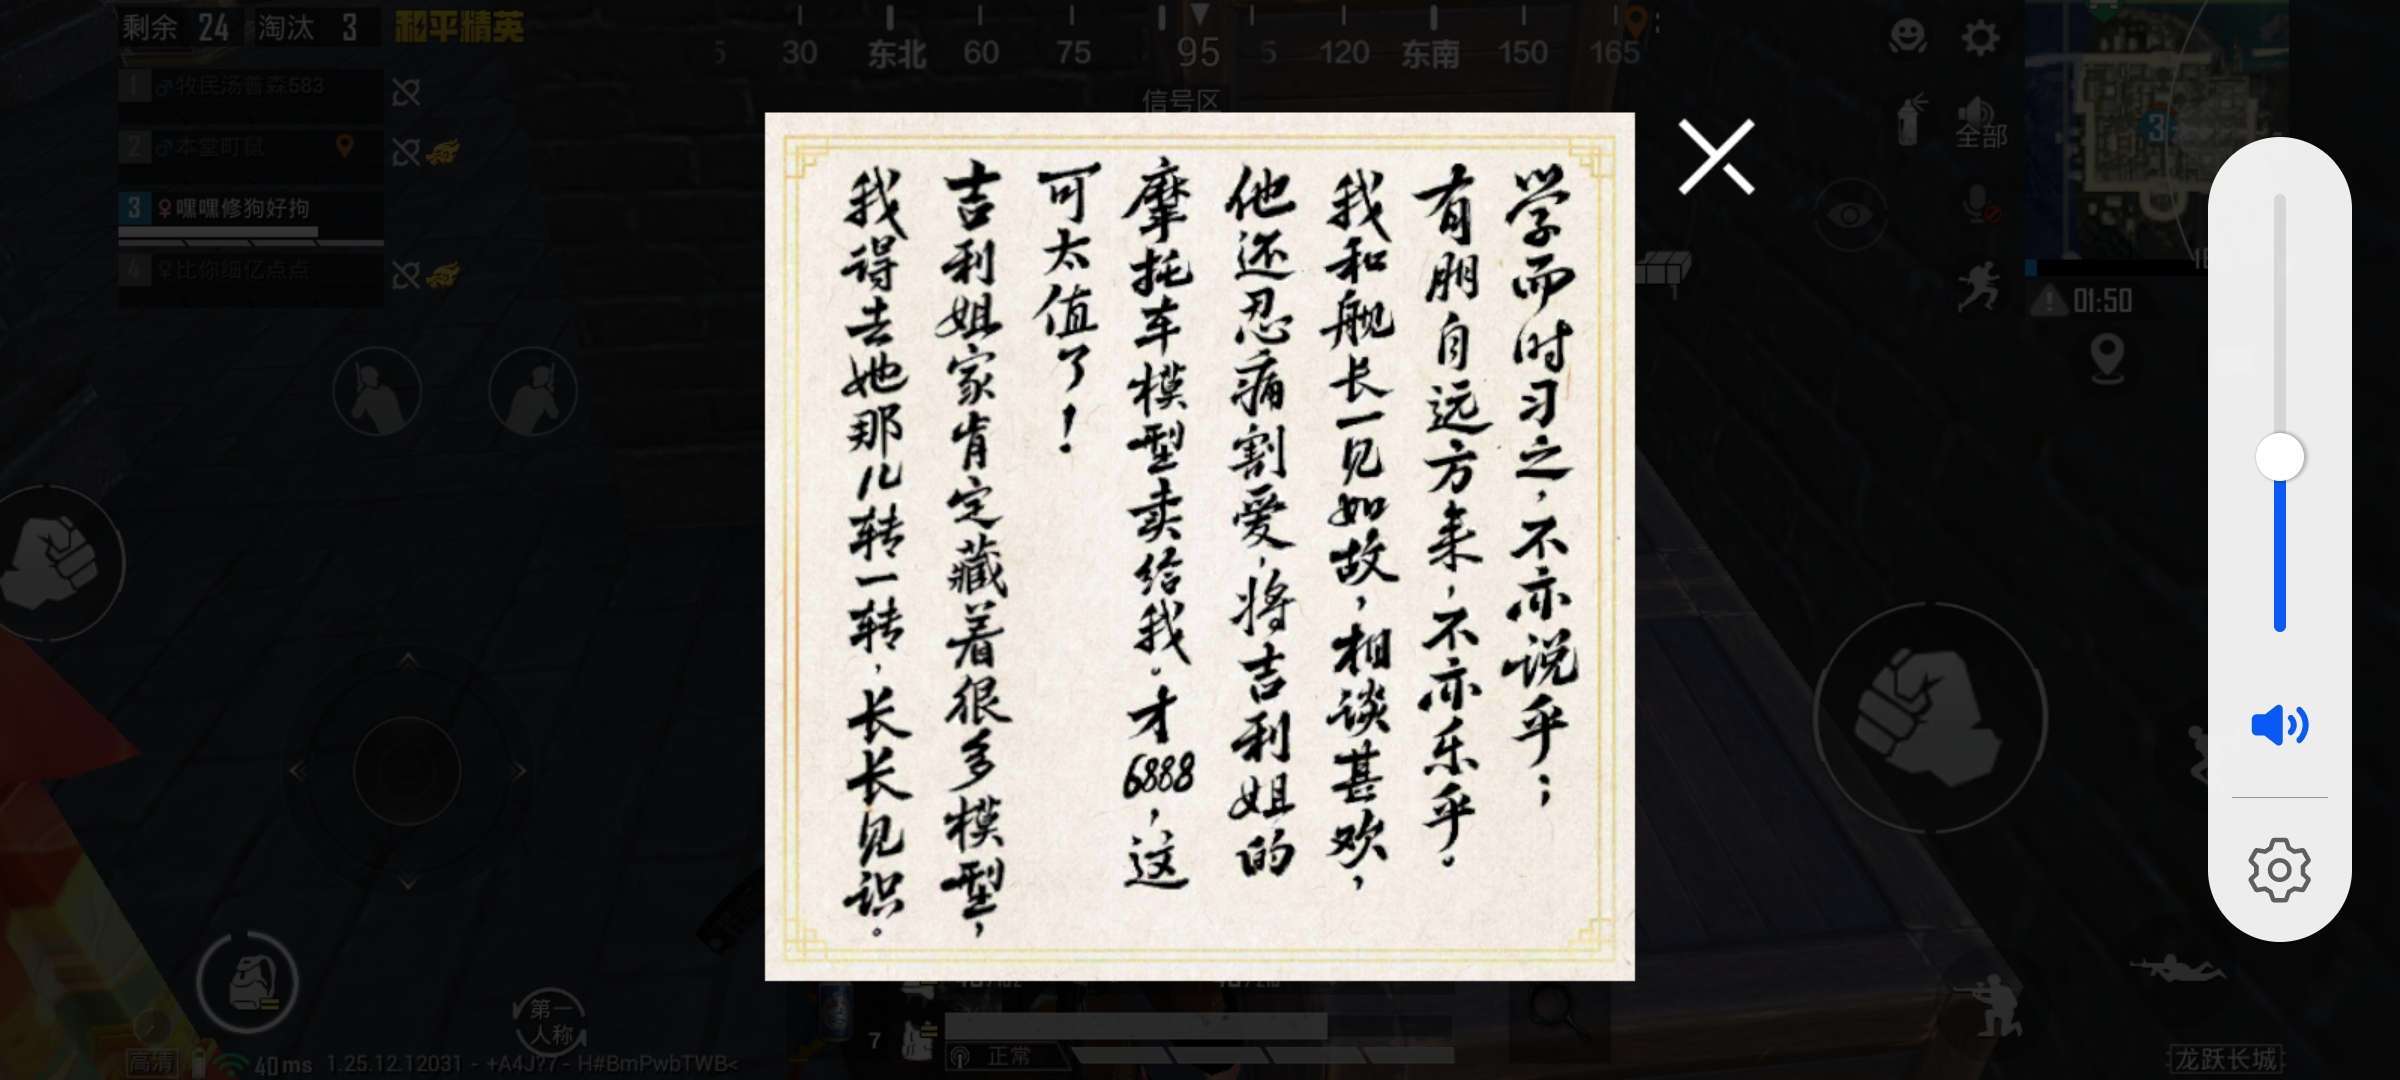 剩余 24 淘汰 3 和平精英
30 东北 60 75 95 5 120 东南 150 165
信号区
1 牧民汤普森583
2 本堂町鼠
3 嘿嘿修狗好拘
4 比你细亿点点
全部
3
01:50
学而时习之，不亦说乎；
有朋自远方来，不亦乐乎。
我和舰长一见如故，相谈甚欢，
他还忍痛割爱，将吉利姐的
摩托车模型卖给我。才6888，这
可太值了！
吉利姐家肯定藏着很多模型，
我得去她那儿转一转，长长见识。
第一
人称
7
正常
高清 40ms 1.25.12.12031 - +A4J?7 - H#BmPwbTWB<
龙跃长城